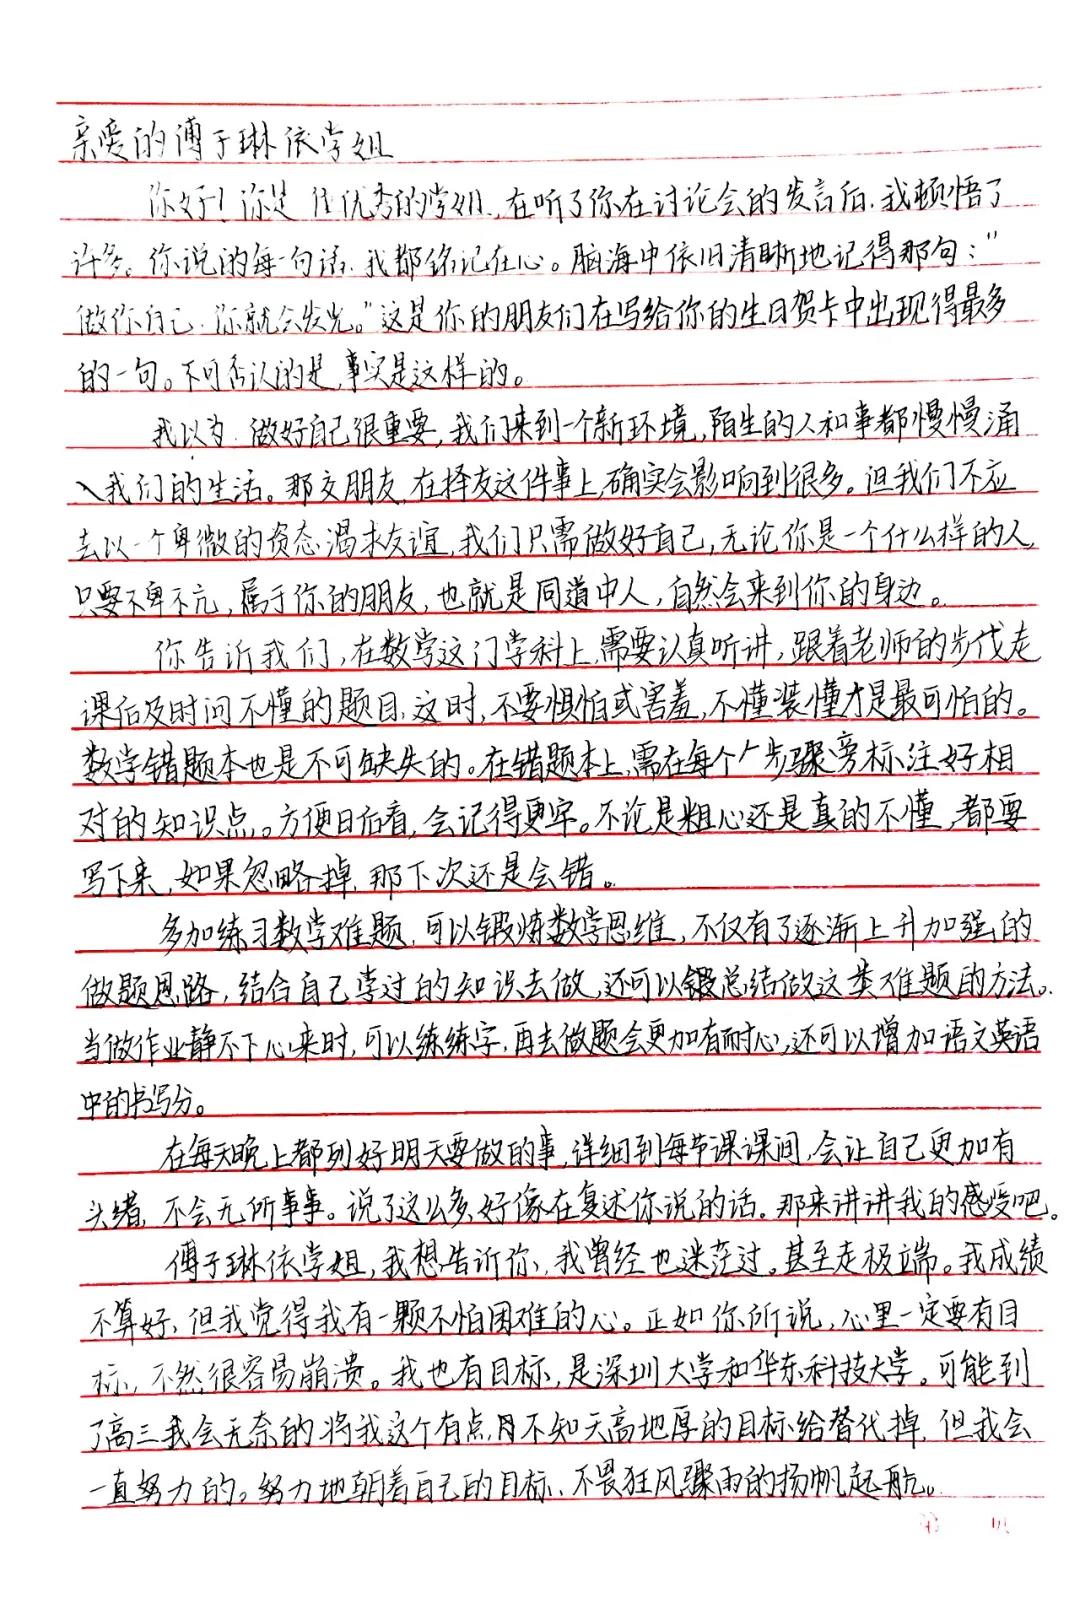 亲爱的傅于琳依学姐
你好！你是位优秀的学姐，在听了你在讨论会的发言后，我顿悟了
许多。你说的每一句话，我都铭记在心。脑海中依旧清晰地记得那句："
做你自己，你就会发光。"这是你的朋友们在写给你的生日贺卡中出现得最多
的一句。不可否认的是，事实是这样的。
我以为，做好自己很重要，我们来到一个新环境，陌生的人和事都慢慢涌
入我们的生活。那交朋友，在择友这件事上，确实会影响到很多。但我们不应
去以一个卑微的资态渴求友谊，我们只需做好自己，无论你是一个什么样的人，
只要不卑不亢，属于你的朋友，也就是同道中人，自然会来到你的身边。
你告诉我们，在数学这门学科上，需要认真听讲，跟着老师的步伐走
课后及时问不懂的题目，这时，不要惧怕或害羞，不懂装懂才是最可怕的。
数学错题本也是不可缺失的。在错题本上，需在每个步骤旁标注好相
对的知识点。方便日后看，会记得更牢。不论是粗心还是真的不懂，都要
写下来，如果忽略掉，那下次还是会错。
多加练习数学难题，可以锻炼数学思维，不仅有了逐渐上升加强的
做题思路，结合自己学过的知识去做，还可以总结做这类难题的方法。
当做作业静不下心来时，可以练练字，再去做题会更加有耐心，还可以增加语文英语
中的书写分。
在每天晚上都列好明天要做的事，详细到每节课课间，会让自己更加有
头绪，不会无所事事。说了这么多，好像在复述你说的话。那来讲讲我的感受吧。
傅于琳依学姐，我想告诉你，我曾经也迷茫过，甚至走极端。我成绩
不算好，但我觉得我有一颗不怕困难的心。正如你所说，心里一定要有目
标，不然很容易崩溃。我也有目标，是深圳大学和华东科技大学。可能到
了高三我会无奈的将我这个有点不知天高地厚的目标给替代掉，但我会
一直努力的。努力地朝着自己的目标，不畏狂风骤雨的扬帆起航。
第 页